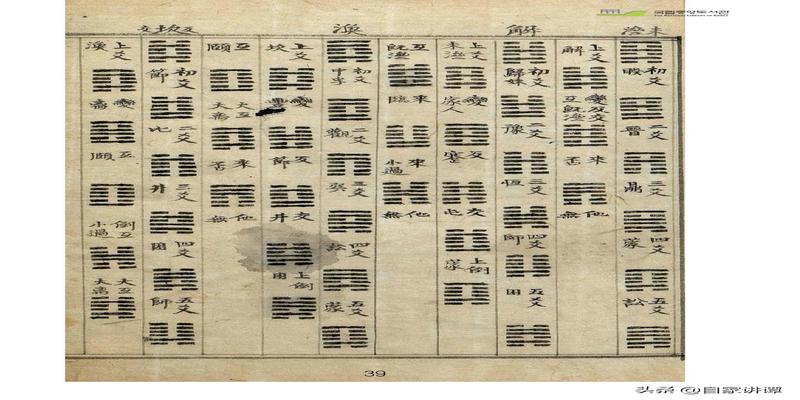 국립중앙도서관
The National Library of Korea
未濟
解
渙
初爻 睽
二爻 晉
三爻 鼎
四爻 蒙
五爻 訟
上爻 解
變 互爻 既濟
來 困
他 無
初爻 歸妹
二爻 豫
三爻 恆
四爻 師
五爻 困
上爻 未濟
變 家人
反 蹇
交 屯
上倒 蒙
互 既濟
來 臨
來 小過
他 無
初爻 中孚
二爻 觀
三爻 巽
四爻 訟
五爻 蒙
上爻 坎
變
反 節
交 井
上倒 困
互 頤
大互
來 困
他 無
初爻 節
二爻 比
三爻 井
四爻 困
五爻 師
上爻 渙
變
互 頤
倒互 小過
大互
39
头条 @自家讲谭